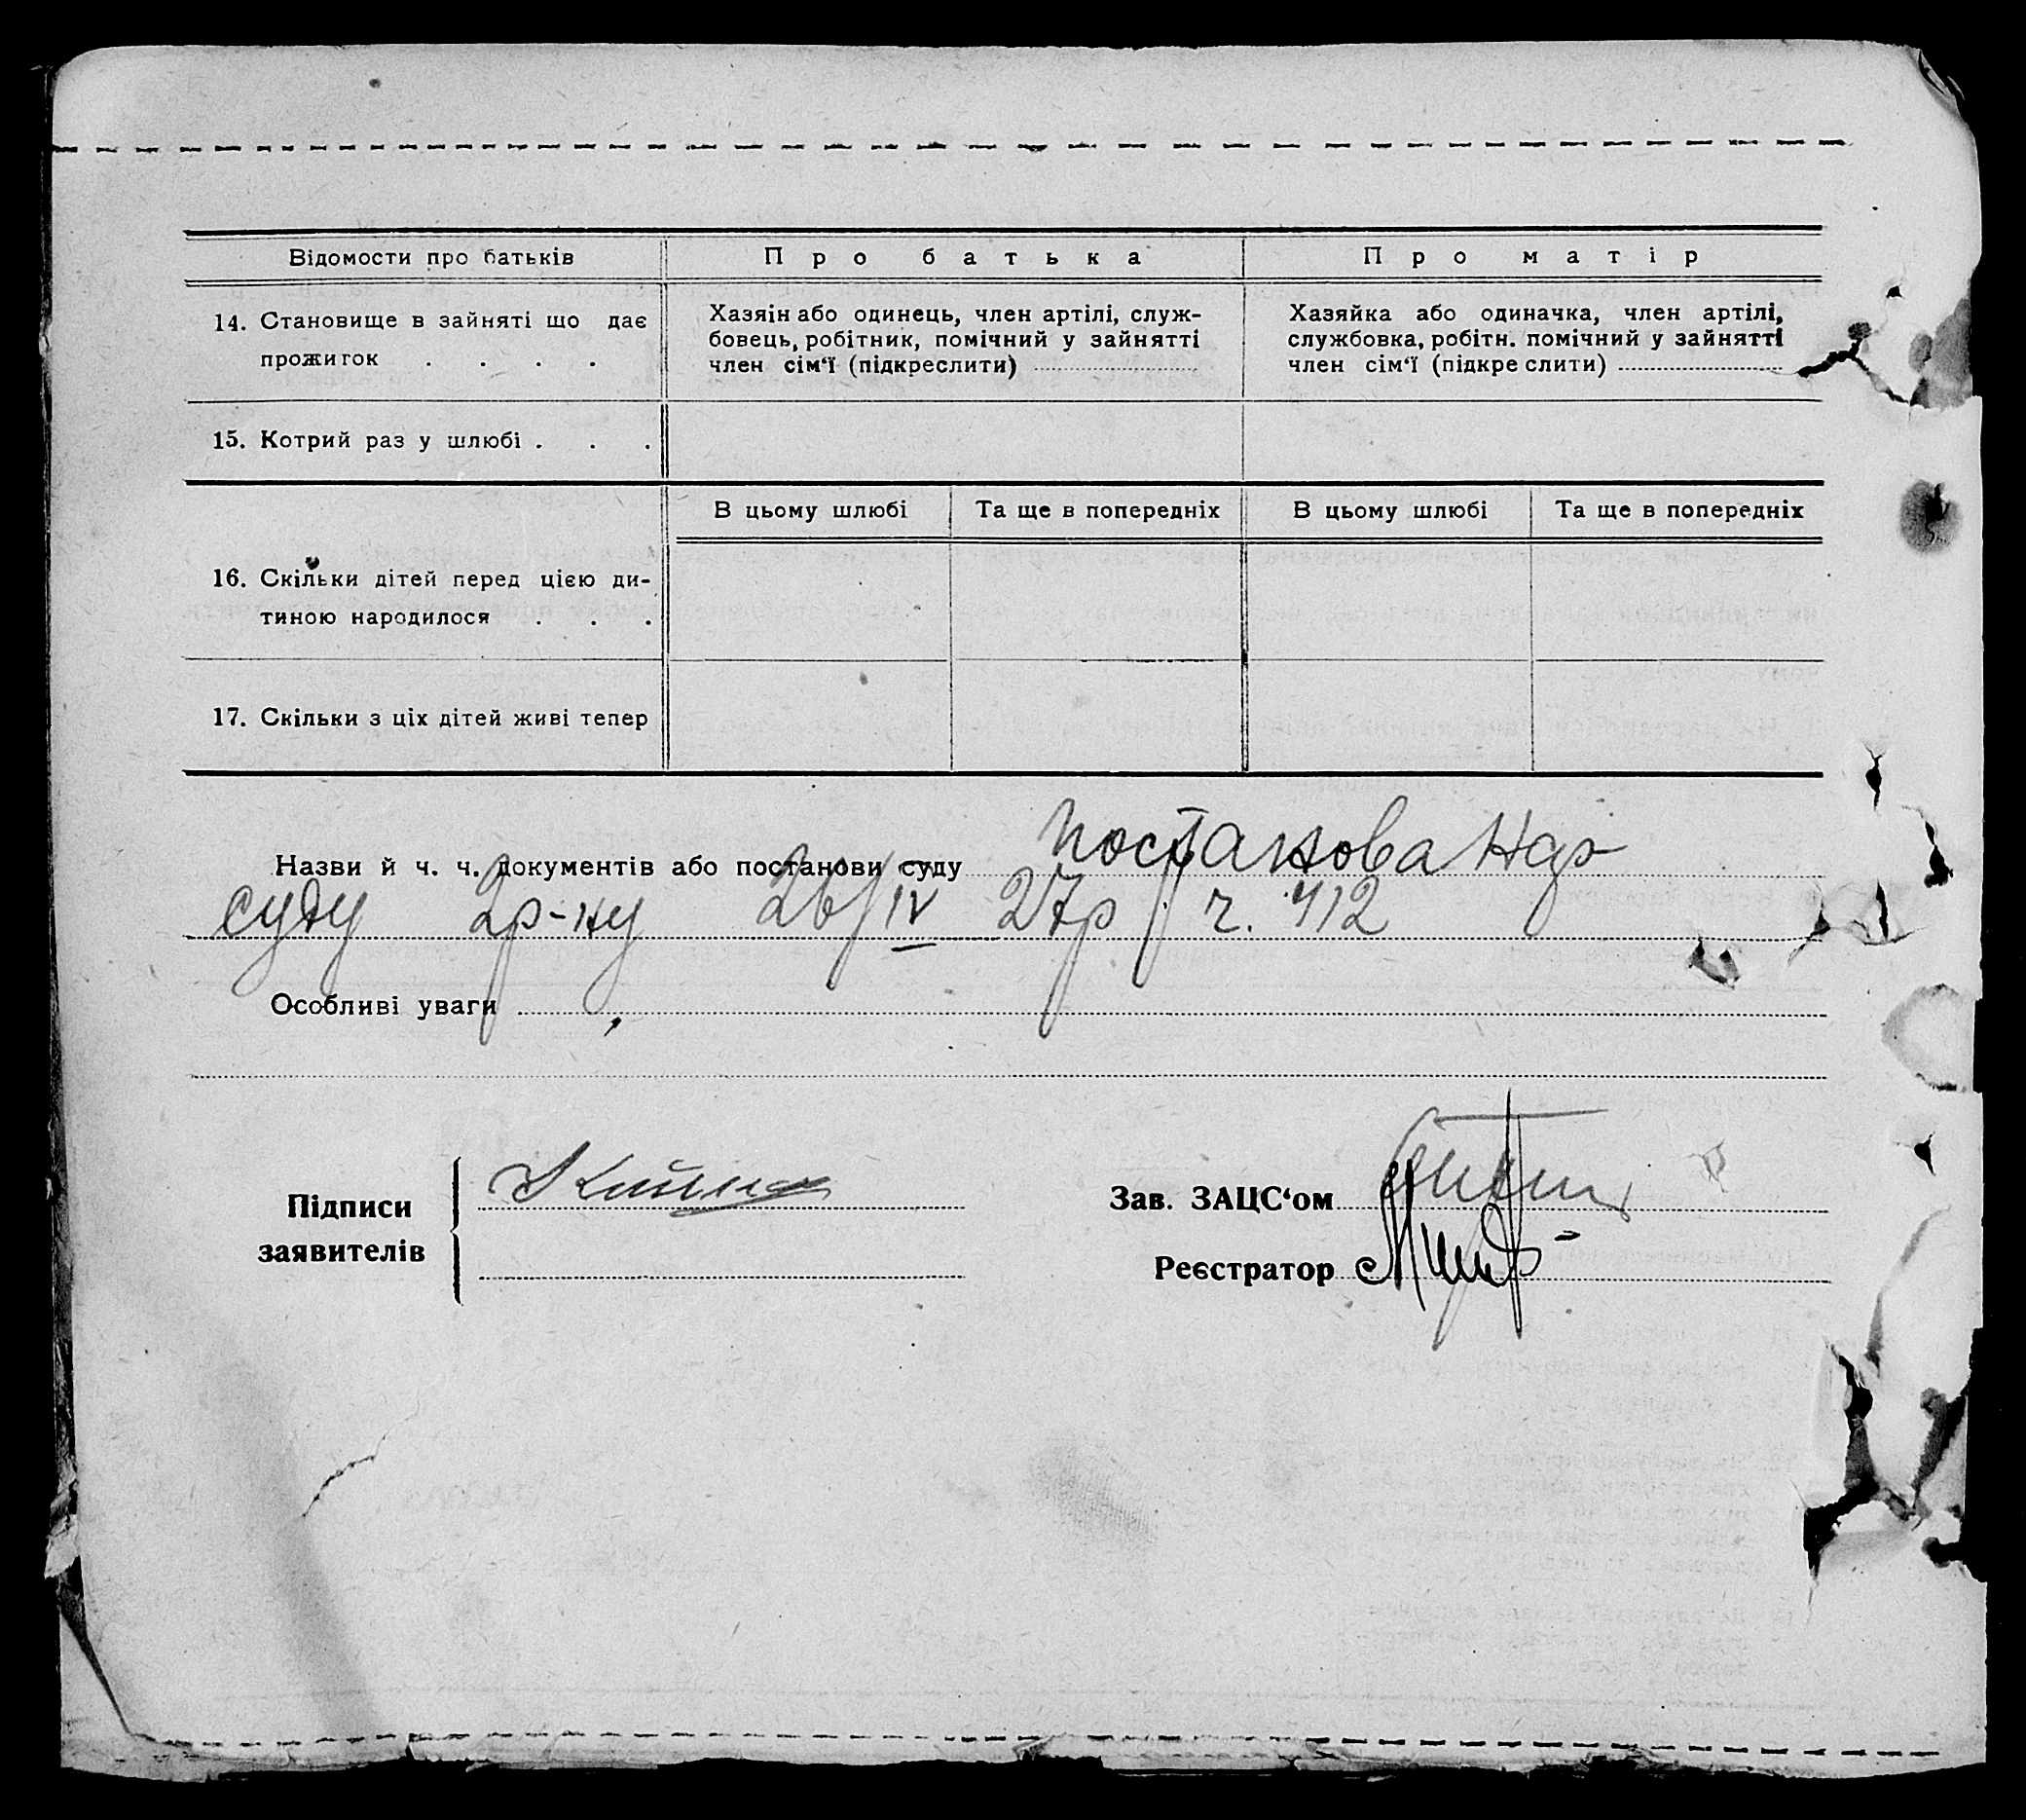 Відомости про батьків
Про батька
Про матір
14. Становище в зайняті що дає
прожиток . . . .
Хазяін або одинець, член артілі, служ-
бовець, робітник, помічний у зайнятті
член сім‘ї (підкреслити)
Хазяйка або одиначка, член артілі,
службовка, робітн. помічний у зайнятті
член сім‘ї (підкреслити)
15. Котрий раз у шлюбі . . .
В цьому шлюбі
Та ще в попередніх
В цьому шлюбі
Та ще в попередніх
16. Скільки дітей перед цією ди-
тиною народилося . . .
17. Скільки з ціх дітей живі тепер
Назви й ч. ч. документів або постанови суду постанова Нар
суду 2р-ну 26/IV 27р ч. 412
Особливі уваги
Підписи
заявителів
Зав. ЗАЦС‘ом
Реєстратор